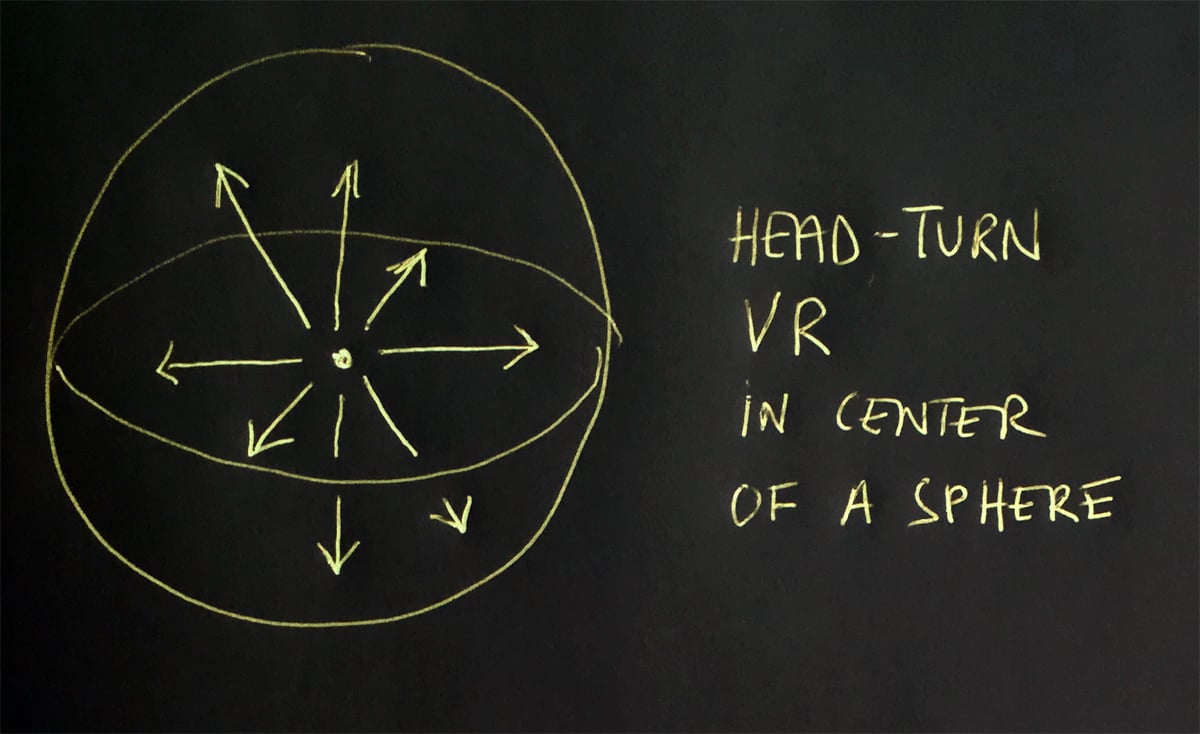 HEAD-TURN
VR
iN CENTER
OF A SPHERE